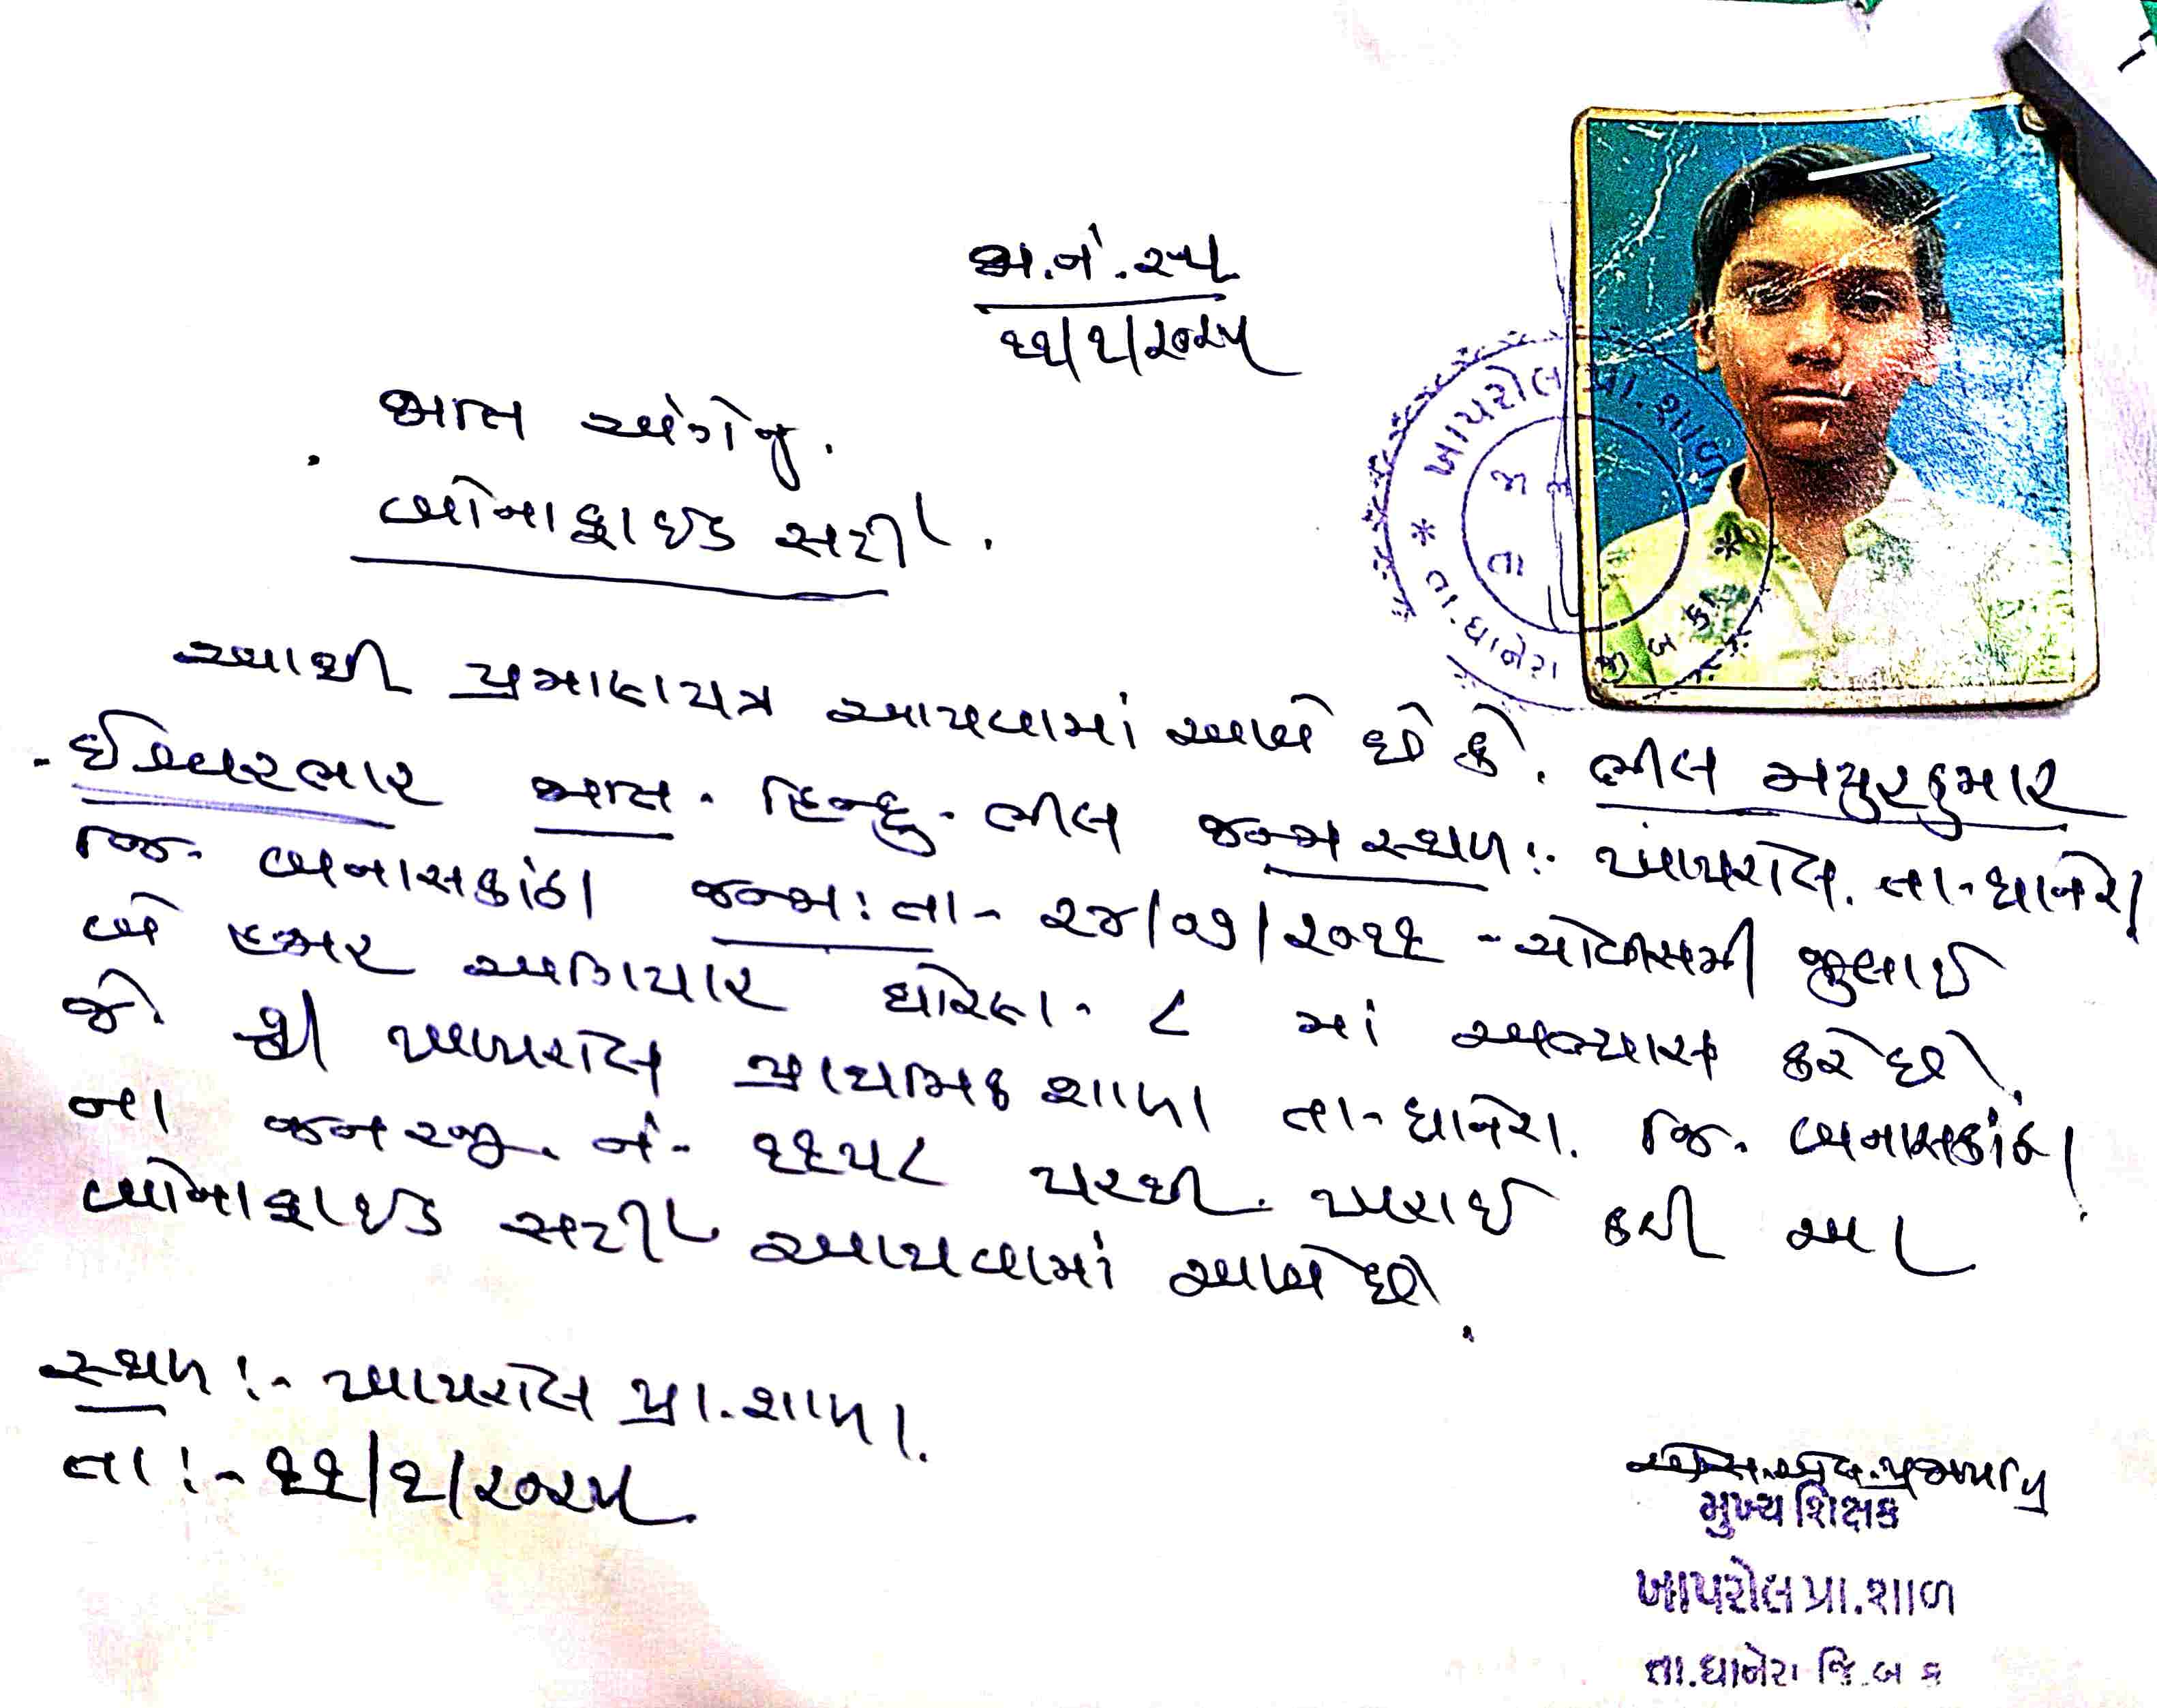 જા.નં.૨૫
૧૧/૧/૨૦૨૫
જાત અંગેનુ.
બોનાફાઇડ સર્ટી.
ખાપરોલ પ્રા. શાળા
જા
તા
* તા.ધાનેરા
બ કાં *
આથી પ્રમાણપત્ર આપવામાં આવે છે કે. ભીલ મયુરકુમાર
ઈશ્વરભાઇ જાત. હિન્દુ. ભીલ જન્મ સ્થળ:. ખાપરોલ. તા-ધાનેરા
જિ. બનાસકાંઠા જન્મ: તા- ૨૪/૦૭/૨૦૧૧ - ચોવીસમી જુલાઈ
બે હજાર અગિયાર ધોરણ. ૮ માં અભ્યાસ કરે છે.
જે. શ્રી ખાપરોલ પ્રાથમિક શાળા તા-ધાનેરા. જિ. બનાસકાંઠા
ના જનરજી. નં- ૧૧૫૮ પરથી. ખરાઈ કરી આ
બોનાફાઇડ સર્ટી આપવામાં આવે છે.
સ્થળ :- ખાપરોલ પ્રા.શાળા.
તા :- ૧૧/૧/૨૦૨૫
પ્રજાપતિ
મુખ્ય શિક્ષક
ખાપરોલ પ્રા.શાળ
તા.ધાનેરા જિ.બ ક